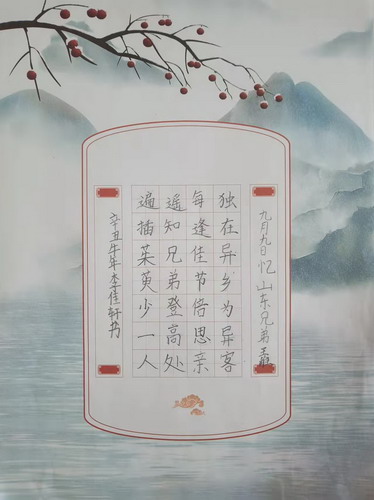 九月九日忆山东兄弟
独在异乡为异客
每逢佳节倍思亲
遥知兄弟登高处
遍插茱萸少一人
辛丑牛年李佳轩书